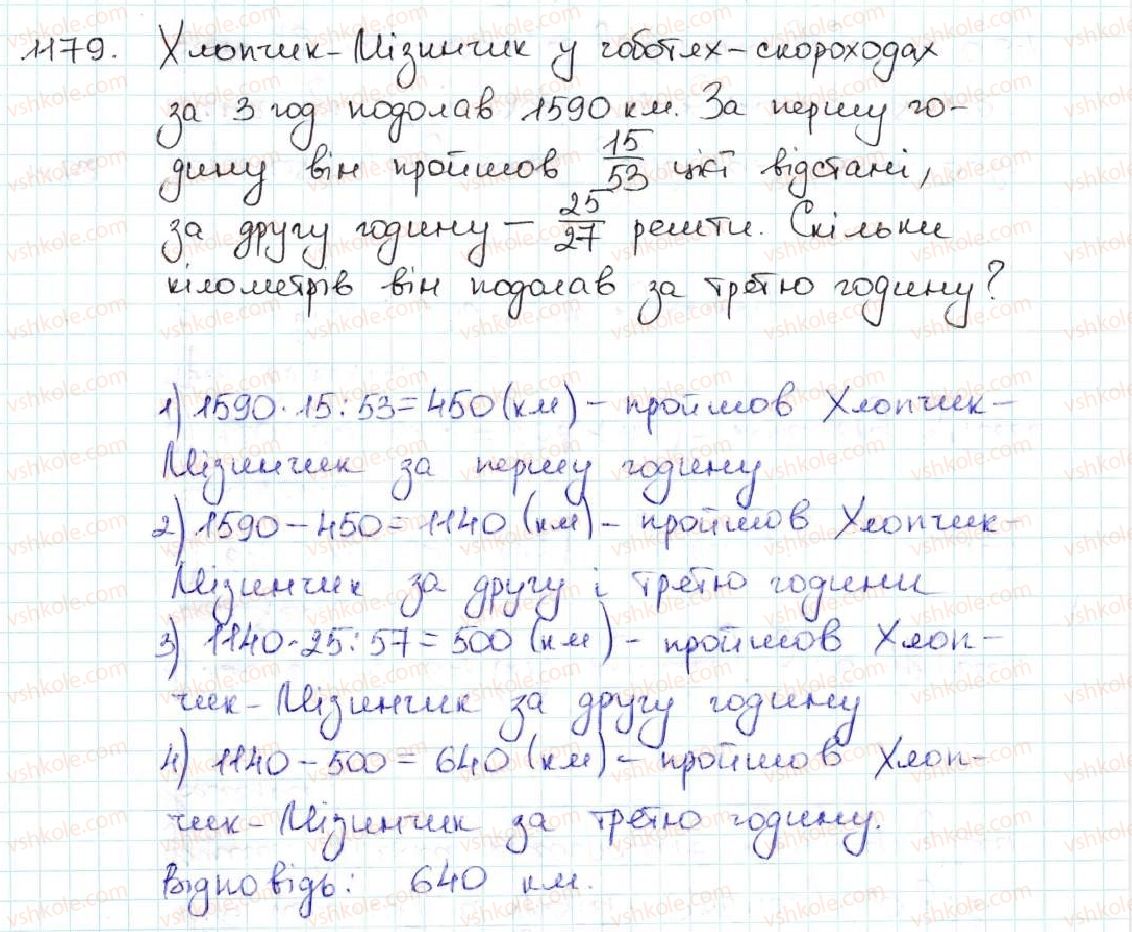 1179. Хлопчик-Мізинчик у чоботях-скороходах
за 3 год подолав 1590 км. За першу го-
дину він пройшов 15/53 цієї відстані,
за другу годину — 25/27 решти. Скільки
кілометрів він подолав за третю годину?
1) 1590·15:53=450(км) – пройшов Хлопчик-
Мізинчик за першу годину
2) 1590-450=1140 (км) – пройшов Хлопчик-
Мізинчик за другу і третю години
3) 1140·25:57=500 (км) – пройшов Хлоп-
чик-Мізинчик за другу годину
4) 1140-500=640 (км) – пройшов Хлоп-
чик-Мізинчик за третю годину.
Відповідь: 640 км.